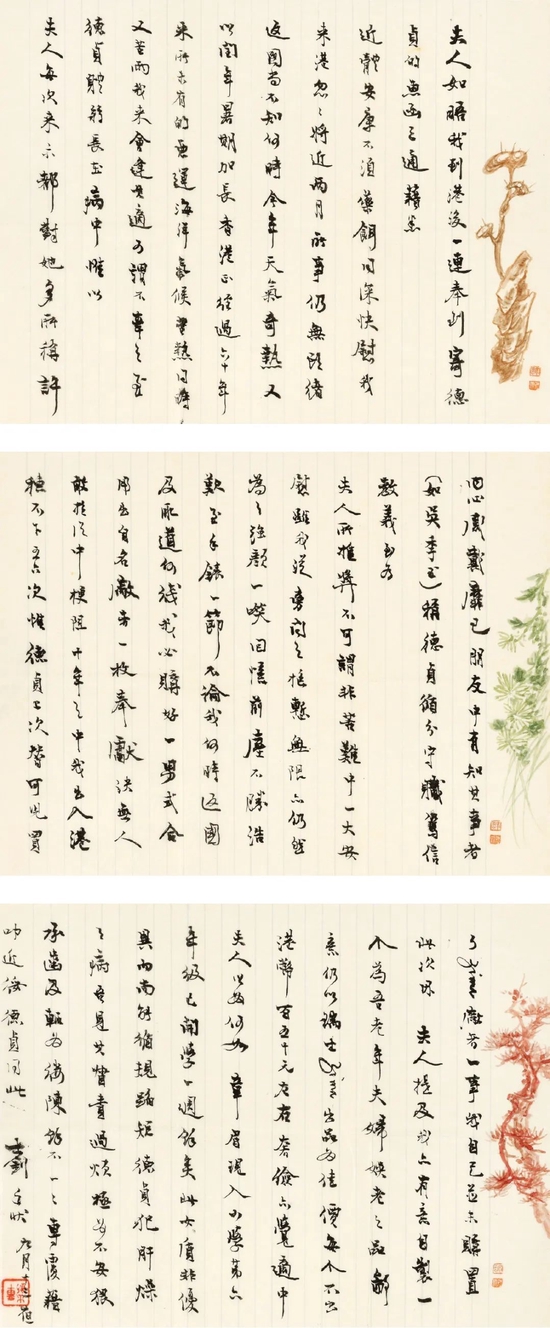 夫人如晤我到港後一連奉到寄德
貞的魚函三通藉悉
近體安康不須藥餌同深快慰我
來港忽忽將近兩月所事仍無頭緒
返國尚不知何時今年天氣奇熱又
以閏年暑期加長香港正經過六十年
來所未有的 海洋氣候 熱同時
又苦雨我來會逢其適可謂不幸之至
德貞體弱長在病中惟以
夫人每次來示都對她多所稱許
四心感戴靡已朋友中有知其事者
（如吳季玉）稱德貞循分守職篤信
教義至為
夫人所推獎不可謂非苦難中一大安
慰雖我從旁聞之推慰無限亦仍然
為之強顏一笑回懷前塵不勝浩
歎至手錶一節不論我何時返國
及取道何後我必購好一男式合
用出自名廠者一枚奉獻決無人
敢從中梗阻廿年之中我出入港
穗不下五六次惟德貞上次皆可凭買
了 者一事我自己並未購置
此次 夫人提及我亦有意自製一
个為吾老年夫婦娛老之品鄙
意仍以瑞士 出品為佳價每个不出
港幣百五十元左右奢儉亦覺適中
夫人以為何如 章眉現入小學第六
年級已開學一週餘矣此女質非優
異而尚能循規蹈矩德貞犯肝燥
之病吾見其督責過煩極為不安猥
承齒及輒為縷陳餘不一一專覆藉
叩近祺德貞同此
 手狀 九月十一日